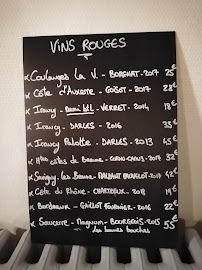 VINS ROUGES
x Coulanges la V. - BORGNAT - 2017 25€
x Côte d'Auxerre - GOISOT - 2017 28€
x Irancy - Demi btl - VERRET - 2014 18€
x Irancy - DARLES - 2016 35€
x Irancy Palotte - DARLES - 2013 45€
x Htes côtes de Beaune - 2017 32€
x Savigny les Beaune - 2017 42€
x Côte du Rhône - CHARTREUX - 2018 19€
x Bordeaux - GAILLOT FOURNIER - 2016 22€
x Sancerre - Magnum - BOURGEOIS - 2015 55€
les bonnes bouches